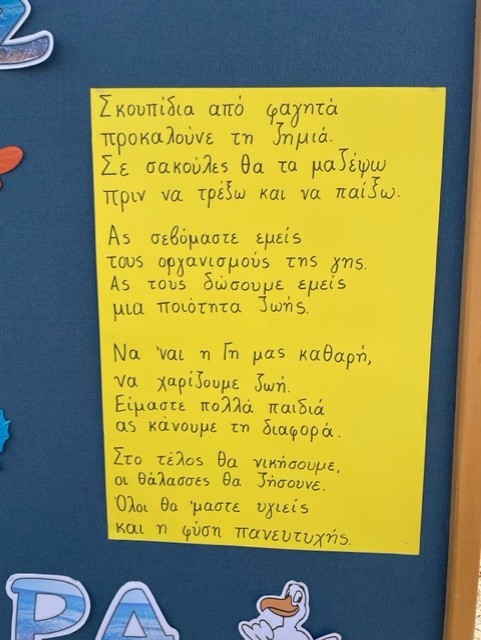 Σ
Σκουπίδια από φαγητά
προκαλούνε τη ζημιά.
Σε σακούλες θα τα μαζέψω
πριν να τρέξω και να παίξω.
Ας σεβόμαστε εμείς
τους οργανισμούς της γης.
Ας τους δώσουμε εμείς
μια ποιότητα ζωής.
Να 'ναι η Γη μας καθαρή,
να χαρίζουμε ζωή.
Είμαστε πολλά παιδιά
ας κάνουμε τη διαφορά.
Στο τέλος θα νικήσουμε,
οι θάλασσες θα ζήσουνε.
Όλοι θα 'μαστε υγιείς
και η φύση πανευτυχής.
ΡΑ